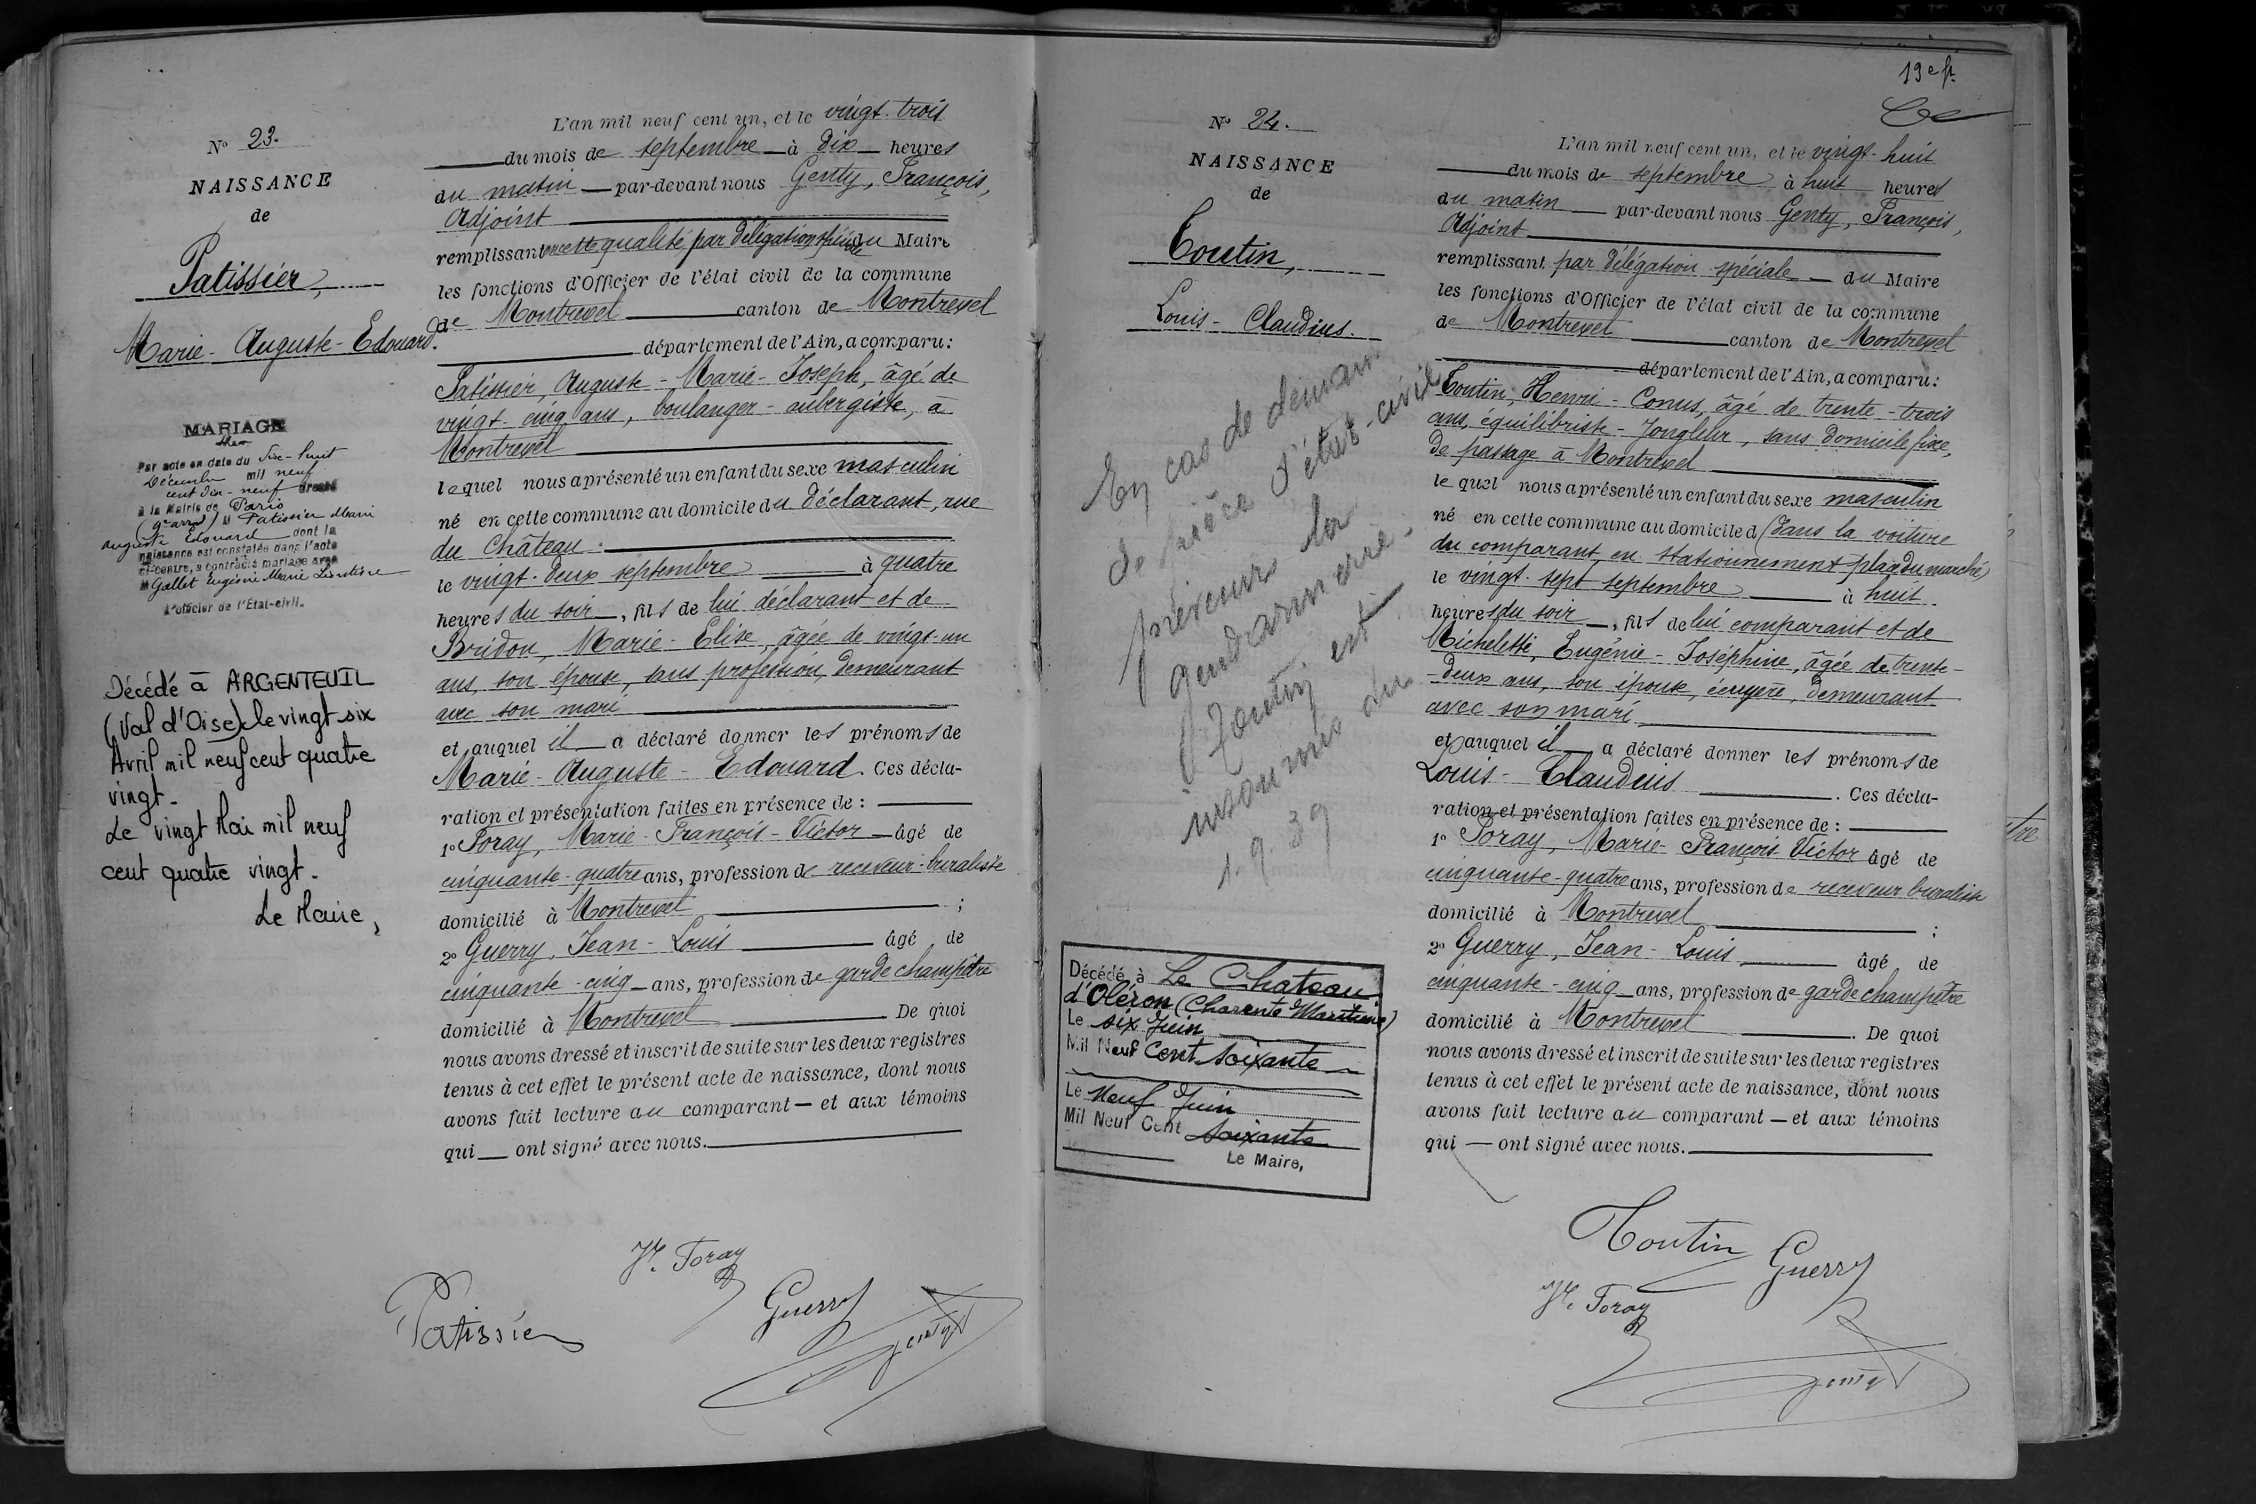 N° 23.
NAISSANCE
de
Patissier,
Marie-Auguste-Edouard.
MARIAGE
Par acte en date du dix-huit
Décembre mil neuf
cent dix-neuf dressé
à la Mairie de Paris
(9e arrd) M Patissier Marie
Auguste Edouard dont la
naissance est constatée dans l'acte
ci-contre, a contracté mariage avec
M Gallet Eugénie Marie
L'officier de l'Etat-civil.
Décédé à ARGENTEUIL
(Val d'Oise) le vingt-six
Avril mil neuf cent quatre
vingt.
Le vingt Mai mil neuf
cent quatre vingt.
Le Maire,
L'an mil neuf cent un, et le vingt-trois
du mois de septembre à dix heures
du matin par-devant nous Genty, François,
Adjoint
remplissant en cette qualité par délégation spéciale du Maire
les fonctions d'Officier de l'état civil de la commune
de Montrevel canton de Montrevel
département de l'Ain, a comparu:
Patissier, Auguste-Marie-Joseph, âgé de
vingt-cinq ans, boulanger-aubergiste, à
Montrevel
lequel nous a présenté un enfant du sexe masculin
né en cette commune au domicile du déclarant, rue
du Château.
le vingt-deux septembre à quatre
heures du soir, fils de lui déclarant et de
Bridon, Marie-Elise, âgée de vingt-un
ans, son épouse, sans profession, demeurant
avec son mari
et auquel il a déclaré donner les prénoms de
Marie-Auguste-Edouard. Ces décla-
ration et présentation faites en présence de:
1° Foray, Marie-François-Victor âgé de
cinquante-quatre ans, profession de receveur-buraliste
domicilié à Montrevel ;
2° Guerry, Jean-Louis âgé de
cinquante-cinq ans, profession de garde champêtre
domicilié à Montrevel De quoi
nous avons dressé et inscrit de suite sur les deux registres
tenus à cet effet le présent acte de naissance, dont nous
avons fait lecture au comparant — et aux témoins
qui ont signé avec nous.
Vr. Foray
Patissier
Guerry
Genty
19e ft.
N° 24.
NAISSANCE
de
Toutin,
Louis-Claudius.
En cas de deman
de pièce d'état-civil
prévenir la
gendarmerie.
Toutin est
insoumis du
1.9.39
Décédé à Le Chateau
d'Oléron (Charente Maritime)
Le six Juin
Mil Neuf Cent Soixante
Le Neuf Juin
Mil Neuf Cent Soixante
Le Maire,
L'an mil neuf cent un, et le vingt-huit
du mois de septembre à huit heures
du matin par-devant nous Genty, François,
Adjoint
remplissant par délégation spéciale du Maire
les fonctions d'Officier de l'état civil de la commune
de Montrevel canton de Montrevel
département de l'Ain, a comparu:
Toutin, Henri-Conus, âgé de trente-trois
ans, équilibriste-Jongleur, sans domicile fixe,
de passage à Montrevel
lequel nous a présenté un enfant du sexe masculin
né en cette commune au domicile d (dans la voiture
du comparant en stationnement place du marché)
le vingt-sept septembre à huit
heures du soir, fils de lui comparant et de
Micheletti, Eugénie-Joséphine, âgée de trente-
-deux ans, son épouse, écuyère, demeurant
avec son mari
et auquel il a déclaré donner les prénoms de
Louis-Claudius. Ces décla-
ration et présentation faites en présence de:
1° Foray, Marie-François-Victor âgé de
cinquante-quatre ans, profession de receveur buraliste
domicilié à Montrevel ;
2° Guerry, Jean-Louis âgé de
cinquante-cinq ans, profession de garde champêtre
domicilié à Montrevel. De quoi
nous avons dressé et inscrit de suite sur les deux registres
tenus à cet effet le présent acte de naissance, dont nous
avons fait lecture au comparant — et aux témoins
qui — ont signé avec nous.
Toutin
Guerry
Vr. Foray
Genty
tre